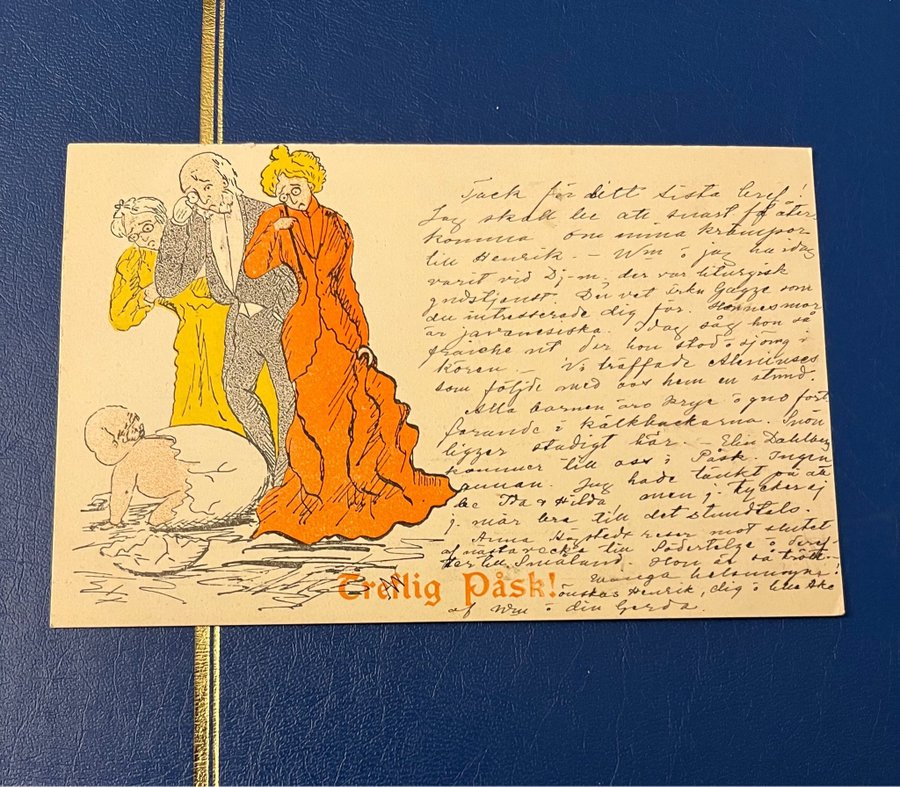 Tack för ditt sista bref!
Jag skall be att snart få åter-
komma om mina krampor
till Henrik. — Wm o jag ha idag
varit vid Dj-m. der var liturgisk
gudstjenst. Du vet Gagge som
du intresserade dig för. Hennes mor
är javanesiska. Idag såg hon så
fraiche ut der hon stod o sjöng i
kören — Vi träffade
som följde med oss hem en stund.
Alla barnen äro krya o gno fort
farande i kälkbackarna. Snön
ligger stadigt här — Elin Dahlberg
kommer till oss i Påsk. Ingen
annan. Jag hade tänkt på att
be Ida & Hilda men j. tycker ej
j. mår bra till det stundtals.
Anna reser mot slutet
af nästa vecka till Södertelge o
ter till Småland. Hon är så trött.
Många helsningar
önskas Henrik, dig o lilla Åke
af Wm o din Gerda.
Treflig Påsk!